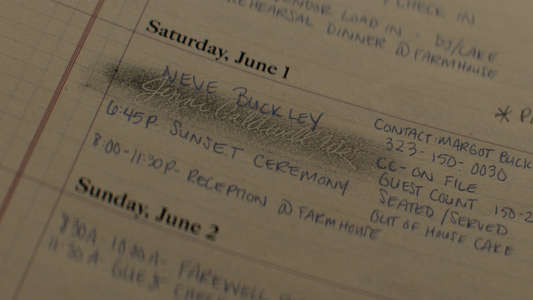 CHECK IN
VENDOR LOAD IN - DJ/CAKE
REHEARSAL DINNER @ FARMHOUSE
Saturday, June 1
NEVE BUCKLEY
6:45P. SUNSET CEREMONY
8:00-11:30P- RECEPTION @ FARMHOUSE
* P
CONTACT: MARGOT BUCK
323-150-0030
CC-ON FILE
GUEST COUNT 150-2
SEATED/SERVED
OUT OF HOUSE CAKE
Sunday, June 2
830A, 1030A- FAREWELL
11:30A- GUEST CHEC